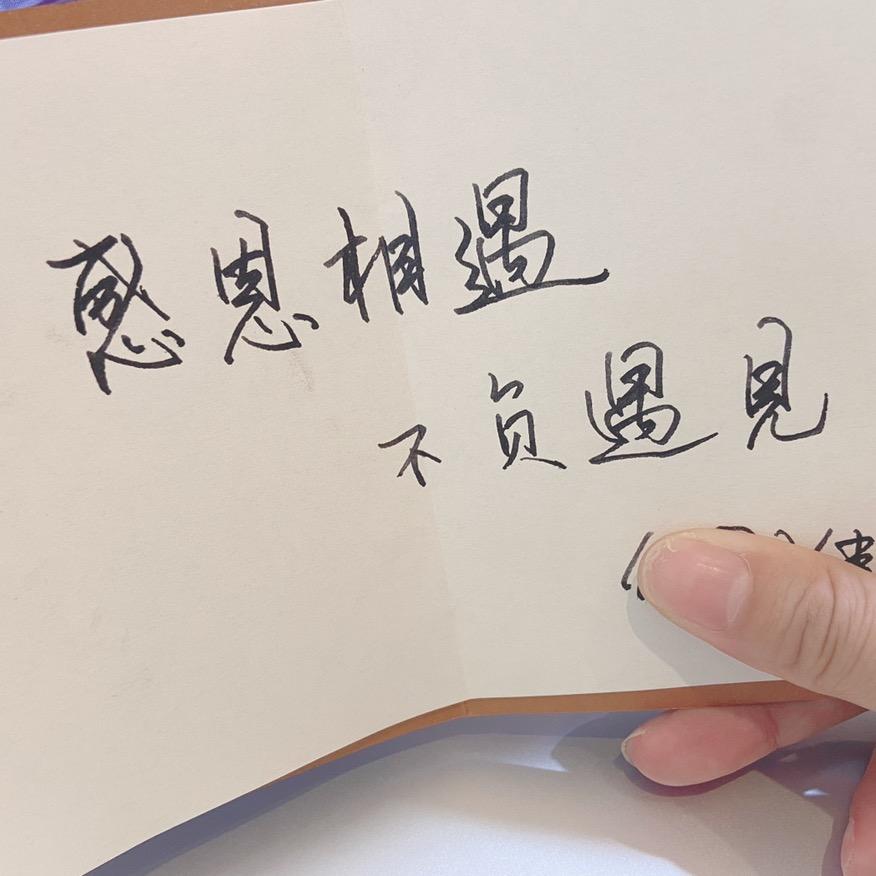 感恩相遇
不负遇见